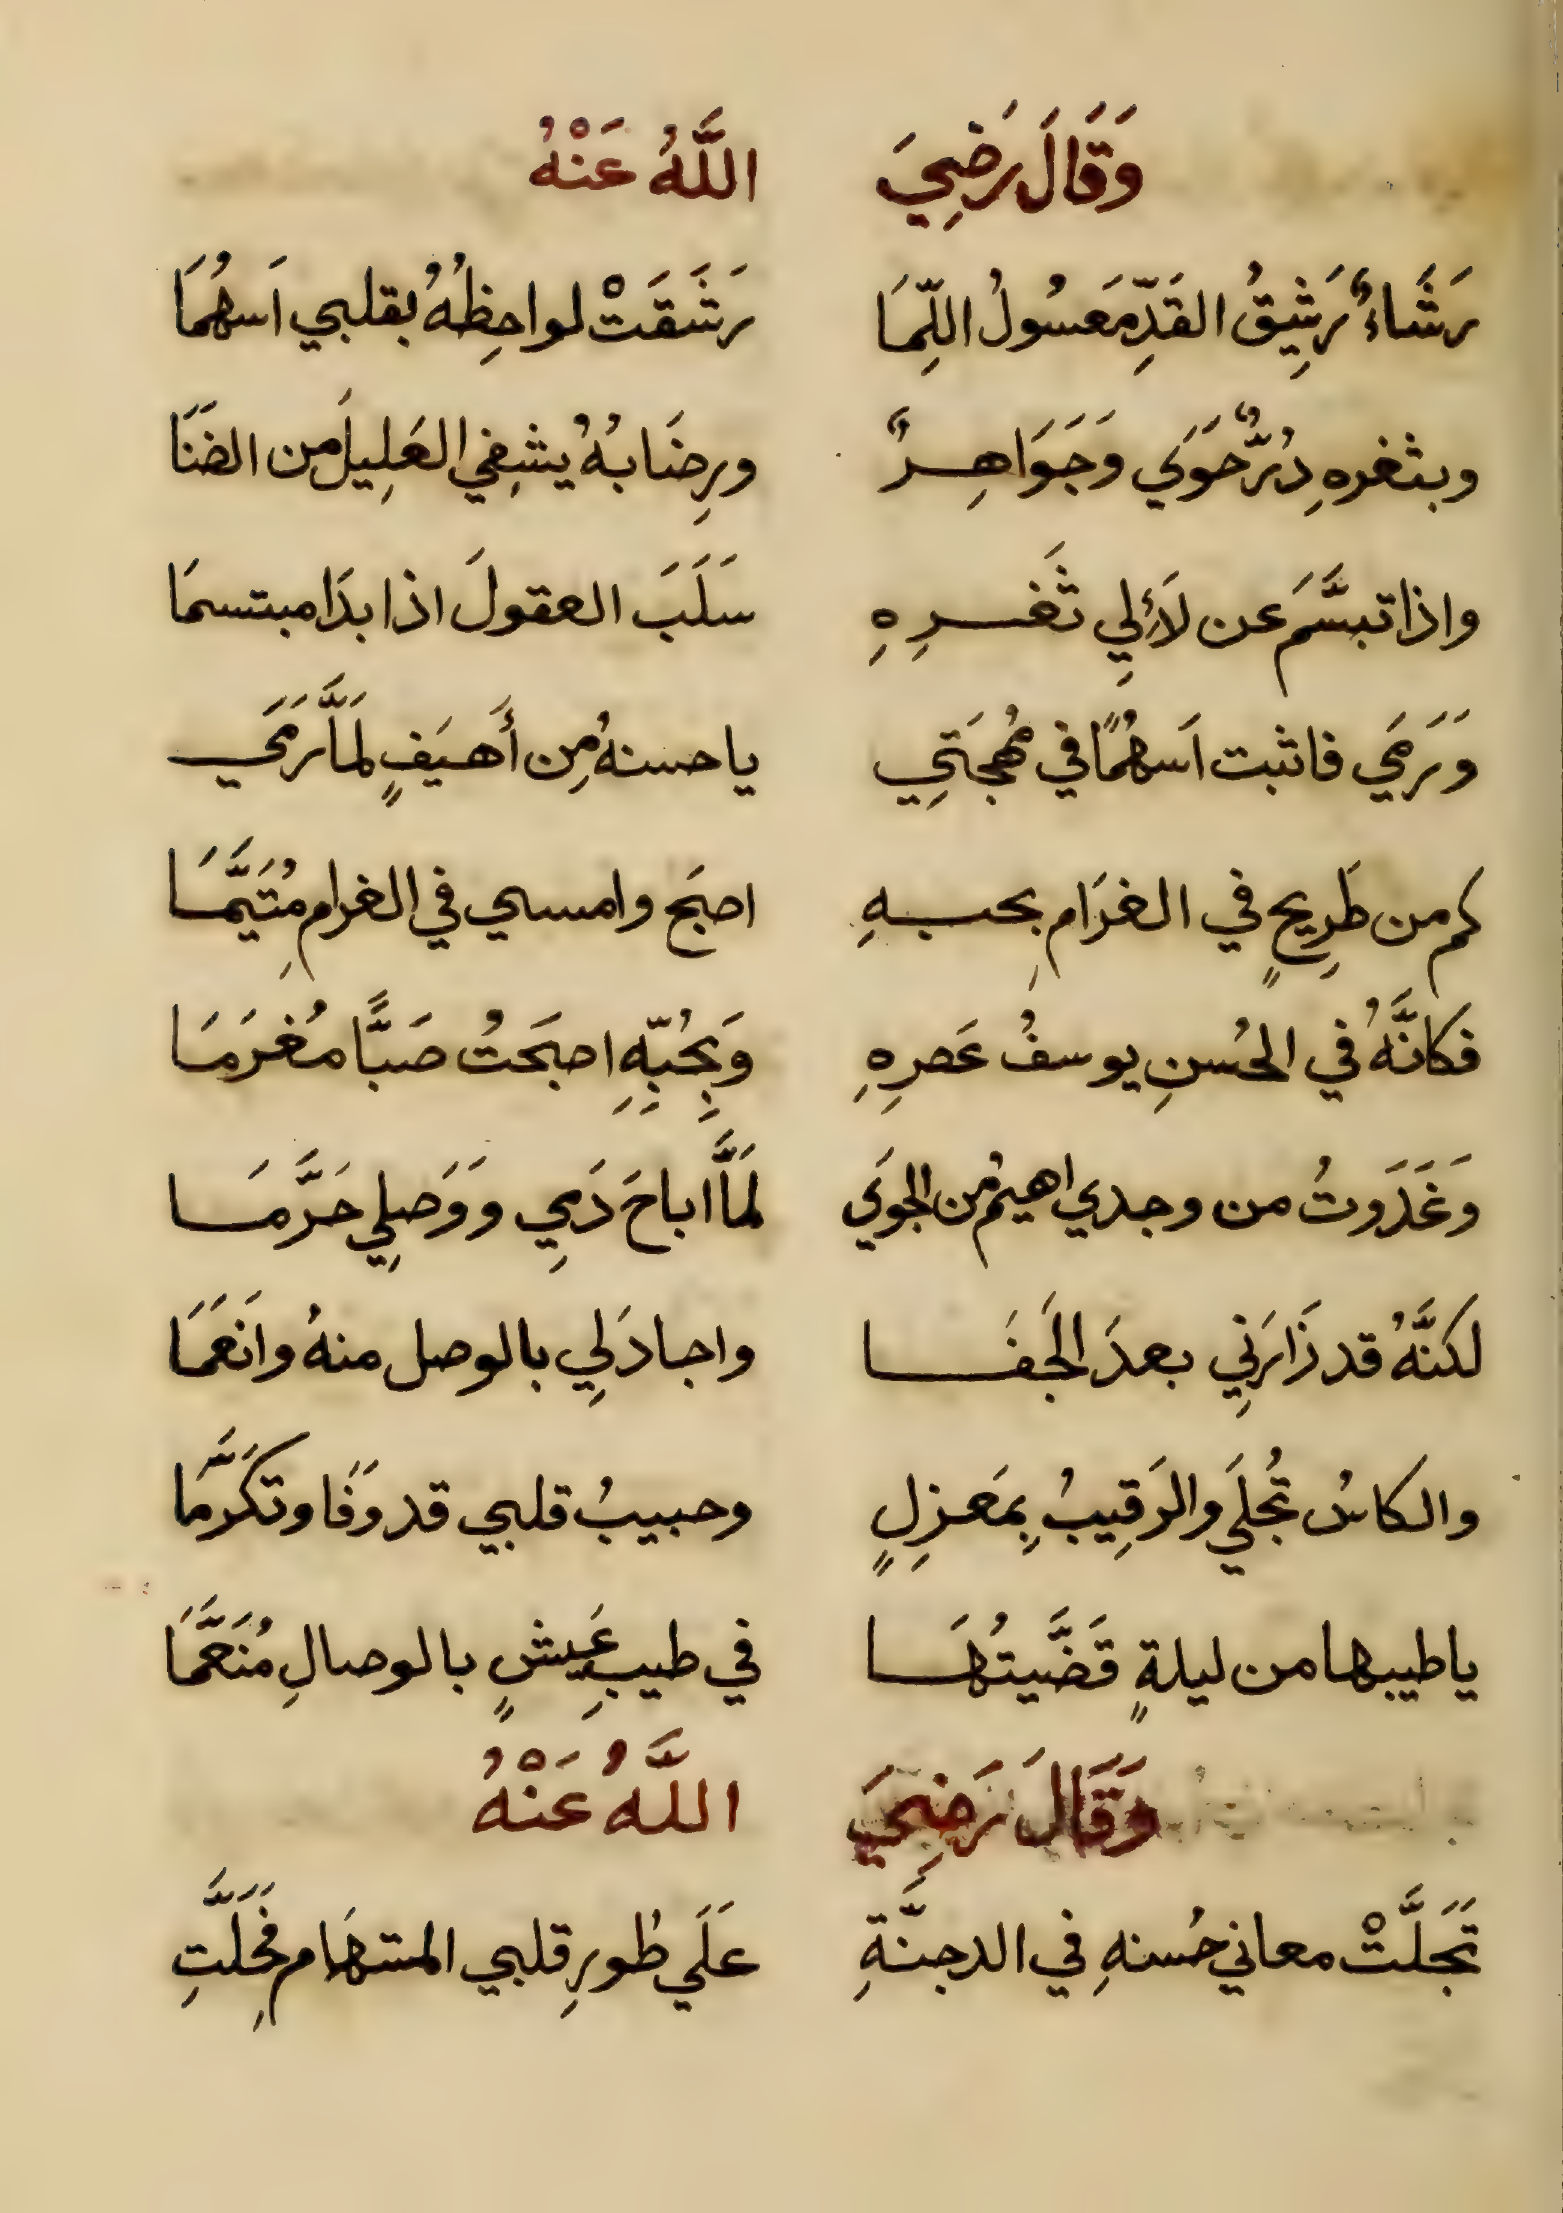 وَقَالَ رَضِيَ اللَّهُ عَنْهُ
رَشَاءٌ رَشِيقُ القَدِّ مَعسُولُ اللِّمَا رَشَقَتْ لواحِظُهُ بقلبي اَسهُمَا
وبثغرهِ دُرٌّ حَوَي وَجَوَاهِرٌ ورِضَابهُ يشفِي العَلِيلَ من الضَنَا
واذا تبسَّمَ عن لَأَلِي ثَغرِهِ سَلَبَ العقولَ اذا بدَا مبتسمَا
وَرَمَي فاثبت اَسهُمًا في مُهجَتِي ياحسنهُ مِن أَهيَفٍ لَمَّا رَمَي
كم من طَرِيحٍ في الغرَامِ بحبهِ اصبَح وامسي في الغرامِ مُتَيَّمَا
فكانَّهُ في الحُسنِ يوسفُ عَصرِهِ وَبِحُبِّهِ اصبَحتُ صَبًّا مُغرَمَا
وَغَدَوتُ من وجدي اهيمُ من الجوَي لَمَّا اباحَ دَمِي وَوَصلِي حَرَّمَا
لكنَّهُ قد زَارَنِي بعدَ الجَفَا واجادَ لِي بالوصل منهُ وانَعَمَا
والكاسُ تُجلَي والرَقِيبُ بِمَعزِلٍ وحبيبُ قلبي قد وَفَا وتكَرَّمَا
ياطيبها من ليلةٍ قَضَّيتُهَا في طيبِ عَيشٍ بالوصالِ مُنَعَّمَا
وَقَالَ رَضِيَ اللَّهُ عَنْهُ
تَجَلَّتْ معاني حُسنهِ في الدجنَّةِ عَلَي طُورِ قلبي المستهَامِ فَجَلَّتِ